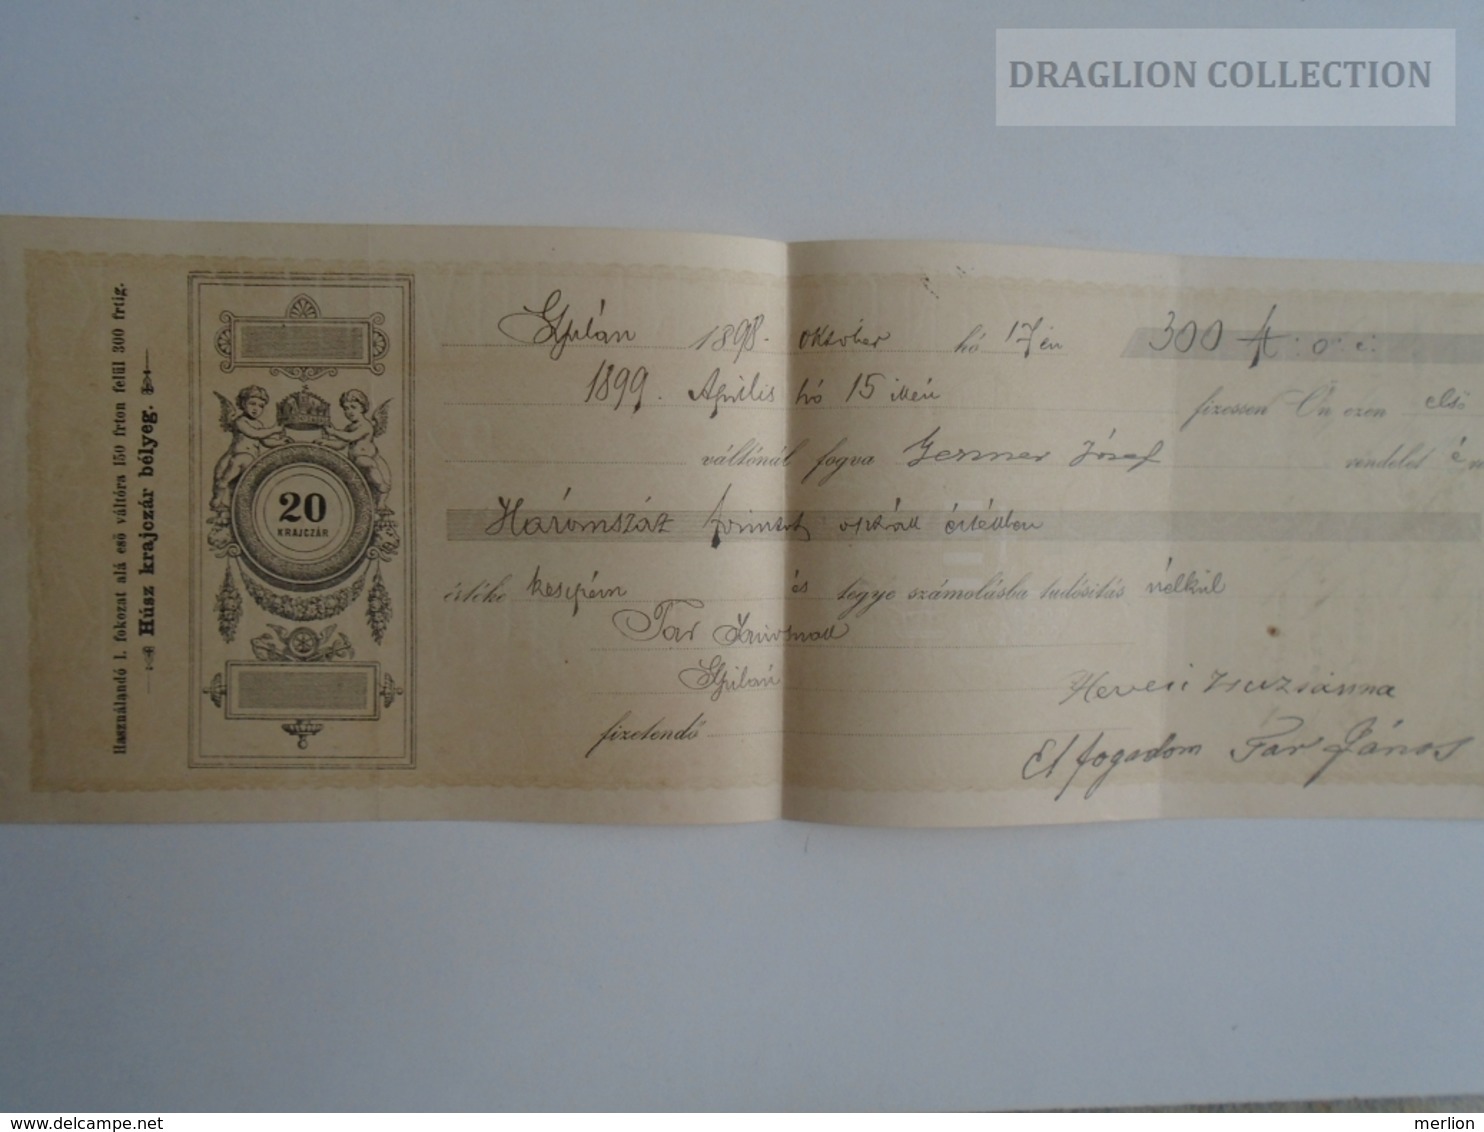 DRAGLION COLLECTION
Használandó I. fokozat alá eső váltóra 150 frton felül 300 frtig.
Húsz krajczár bélyeg.
20
KRAJCZÁR
1898. október hó 17én 300 ft: o: c:
1899. Április hó 15ikén fizessen Ön ezen első
váltónál fogva József rendelet é
Háromszáz forintot osztrák értékben
értéke készpém és tegye számolásba tudósitás nélkül
Tar Jánosnak
Hevesi Zsuzsánna
fizetendő
Elfogadom Tar János
www.delcampe.net
merlion